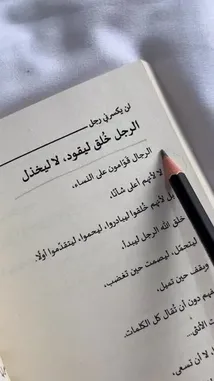 لن يكسرني رجل
الرجل خُلق ليقود، لا ليخذل
الرجال قوّامون على النساء.
لا لأنهم أعلى شأنًا.
بل لأنهم خُلقوا ليبادروا، ليحموا، ليتقدّموا أولًا.
خلق الله الرجل ليبدأ،
ليتحمّل، ليصمت حين تغضب،
ويقف حين تميل.
دون أن تُقال كل الكلمات.
الأنثى...
لا أن تسعى